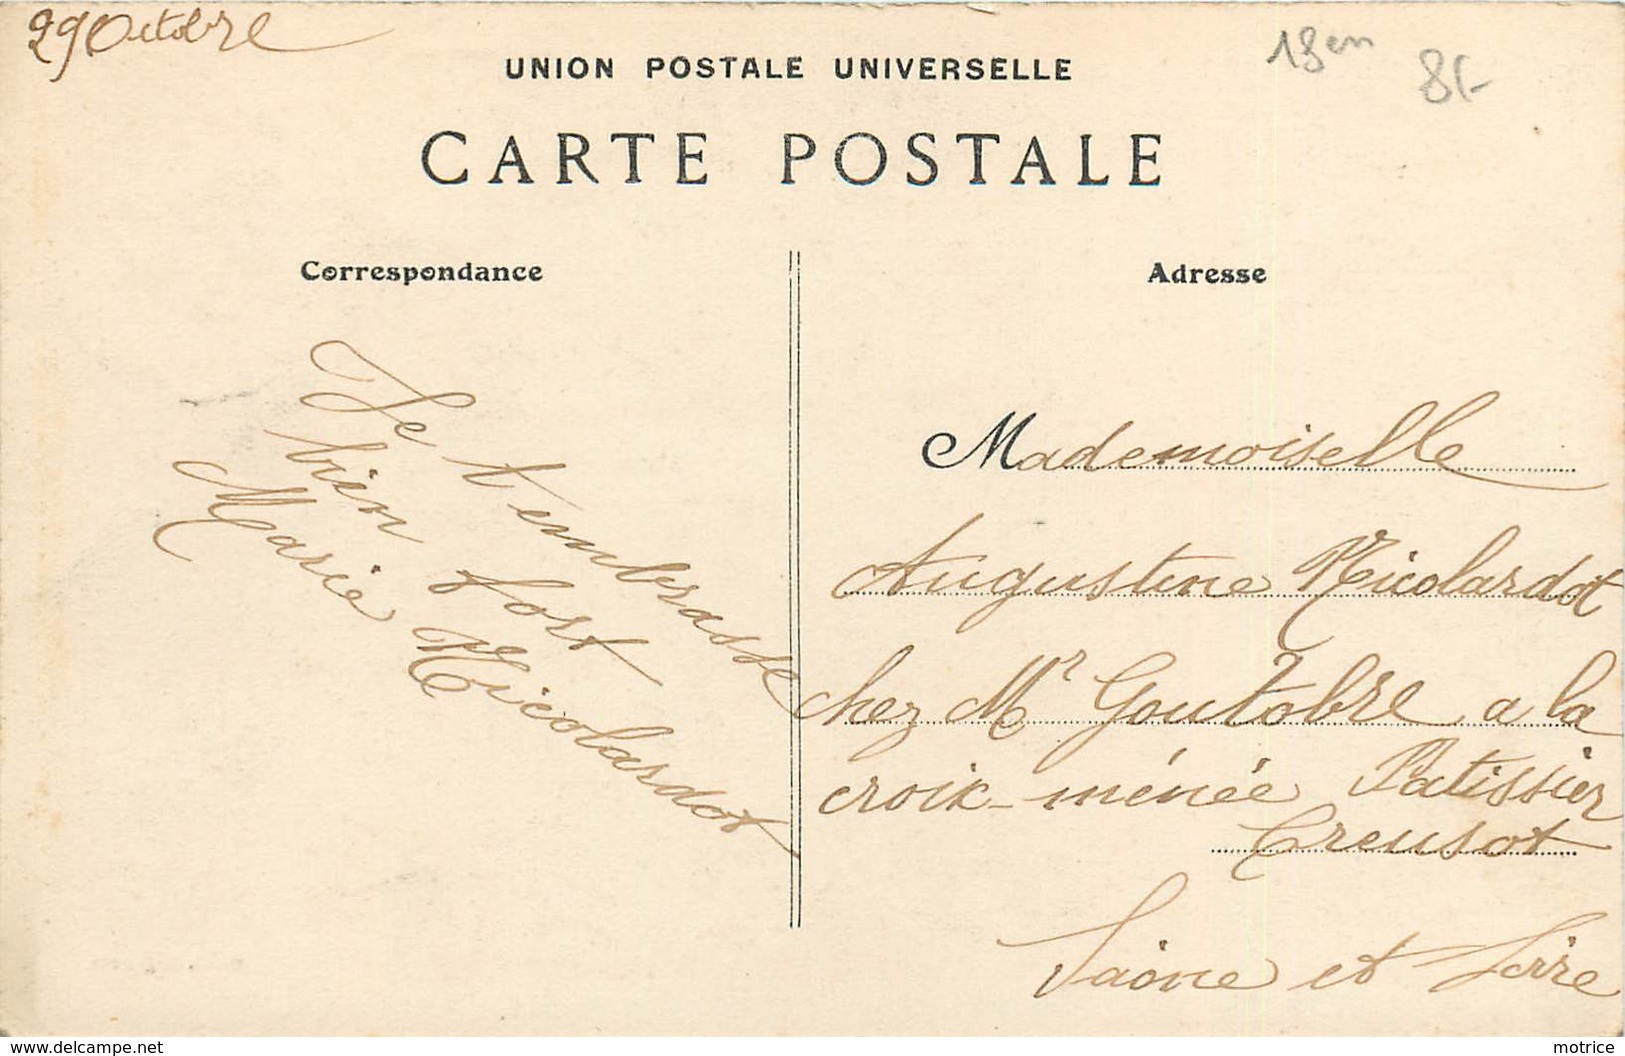 29 Octobre
18 em
8f-
UNION POSTALE UNIVERSELLE
CARTE POSTALE
Correspondance
Je t'embrasse
bien fort
Marie Nicolardot
Adresse
Mademoiselle
Augustine Nicolardot
chez Mr Goutobre a la
croix-ménée Patissier
Creusot
Saône et Loire
www.delcampe.net
motrice